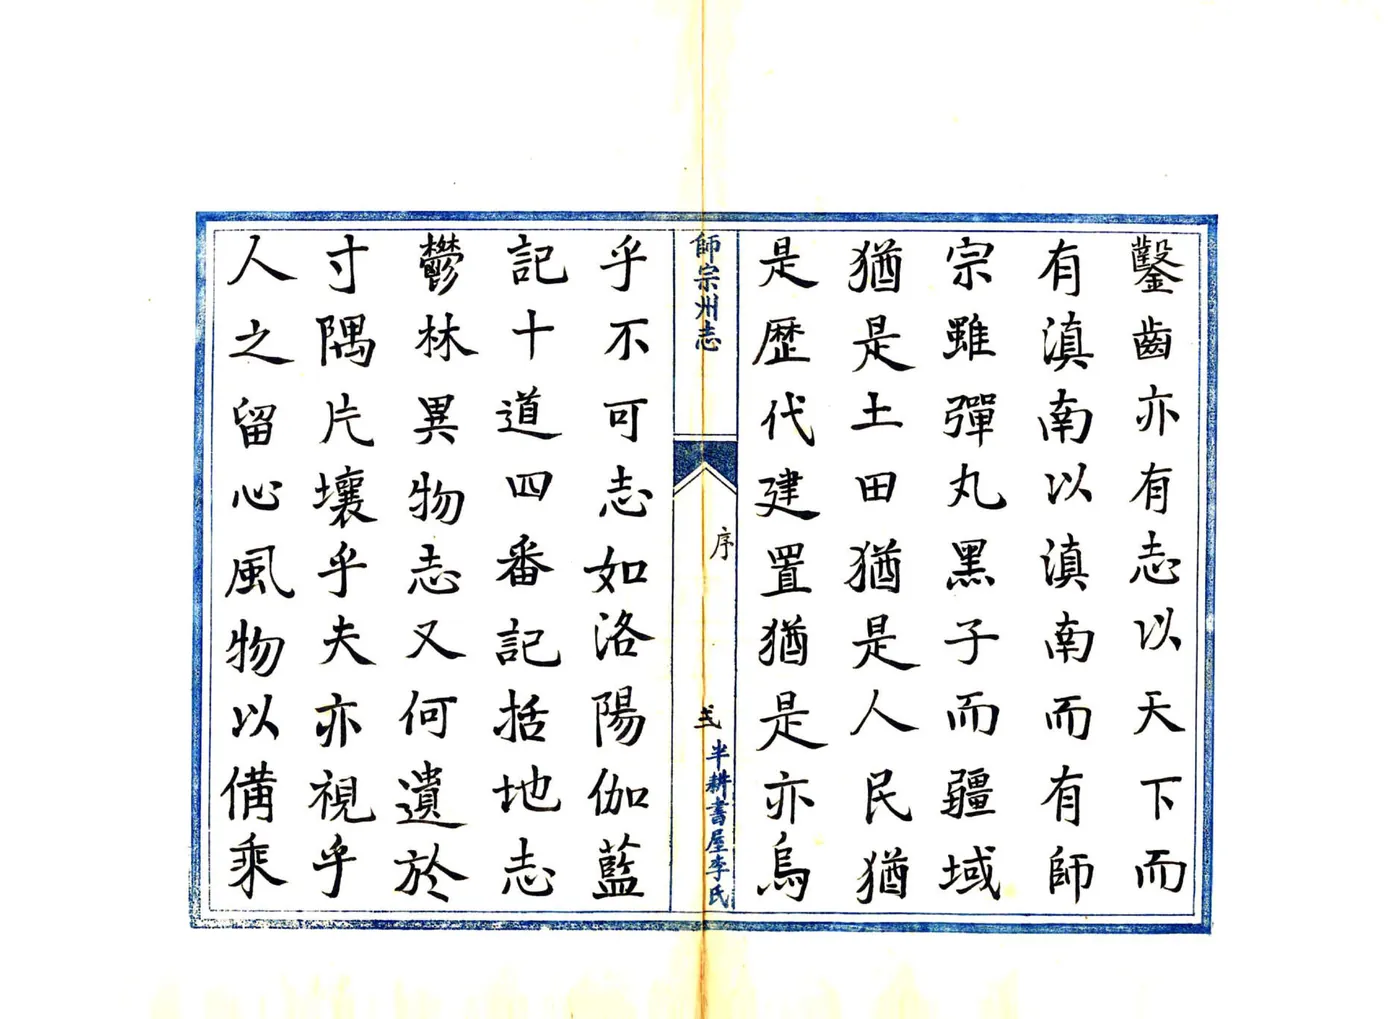 鑿齒亦有志以天下而
有滇南以滇南而有師
宗雖彈丸黑子而疆域
猶是土田猶是人民猶
是歷代建置猶是亦烏
師宗州志
序
弍
半耕書屋李氏
乎不可志如洛陽伽藍
記十道四番記括地志
鬱林異物志又何遺於
寸隅片壤乎夫亦視乎
人之留心風物以備乘